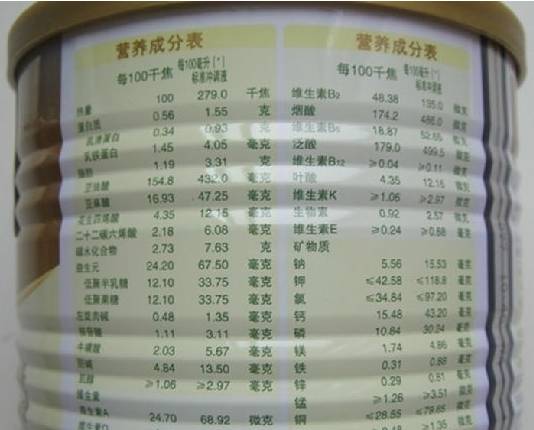 营养成分表
每100千焦 每100毫升[*]
标准冲调液
热量 100 279.0 千焦
蛋白质 0.56 1.55 克
乳清蛋白 0.34 0.93 克
乳铁蛋白 1.45 4.05 毫克
脂肪 1.19 3.31 克
亚油酸 154.8 432.0 毫克
亚麻酸 16.93 47.25 毫克
花生四烯酸 4.35 12.15 毫克
二十二碳六烯酸 2.18 6.08 毫克
碳水化合物 2.73 7.63 克
益生元 24.20 67.50 毫克
低聚半乳糖 12.10 33.75 毫克
低聚果糖 12.10 33.75 毫克
左旋肉碱 0.48 1.35 毫克
核苷酸 1.11 3.11 毫克
牛磺酸 2.03 5.67 毫克
胆碱 4.84 13.50 毫克
肌醇 ≥1.06 ≥2.97 毫克
维生素A 24.70 68.92 微克
营养成分表
每100千焦 每100毫升[*]
标准冲调液
维生素B2 48.38 135.0 微克
烟酸 174.2 486.0 微克
维生素B6 18.87 52.65 微克
泛酸 179.0 499.5 微克
维生素B12 ≥0.04 ≥0.11 微克
叶酸 4.35 12.15 微克
维生素K ≥1.06 ≥2.97 微克
生物素 0.92 2.57 微克
维生素E ≥0.24 ≥0.68 毫克
矿物质
钠 5.56 15.53 毫克
钾 ≤42.58 ≤118.8 毫克
氯 ≤34.84 ≤97.20 毫克
钙 15.48 43.20 毫克
磷 10.84 30.24 毫克
镁 1.74 4.86 毫克
铁 0.31 0.88 毫克
锌 0.29 0.81 毫克
锰 ≥1.26 ≥3.51 微克
铜 ≤28.55 ≤79.65 微克